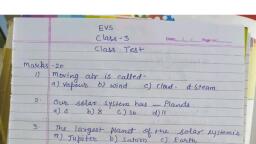 EVS
Class-3
Class Test
Marks-20
1) Moving air is called-
a) Vapour b) wind c) Cloud d. Steam
2. Our solar system has — Planets
a) 4 b) 8 c) 10 d) 11
3. The largest Planet of the solar system is
a) Jupiter b) Saturn c) Earth